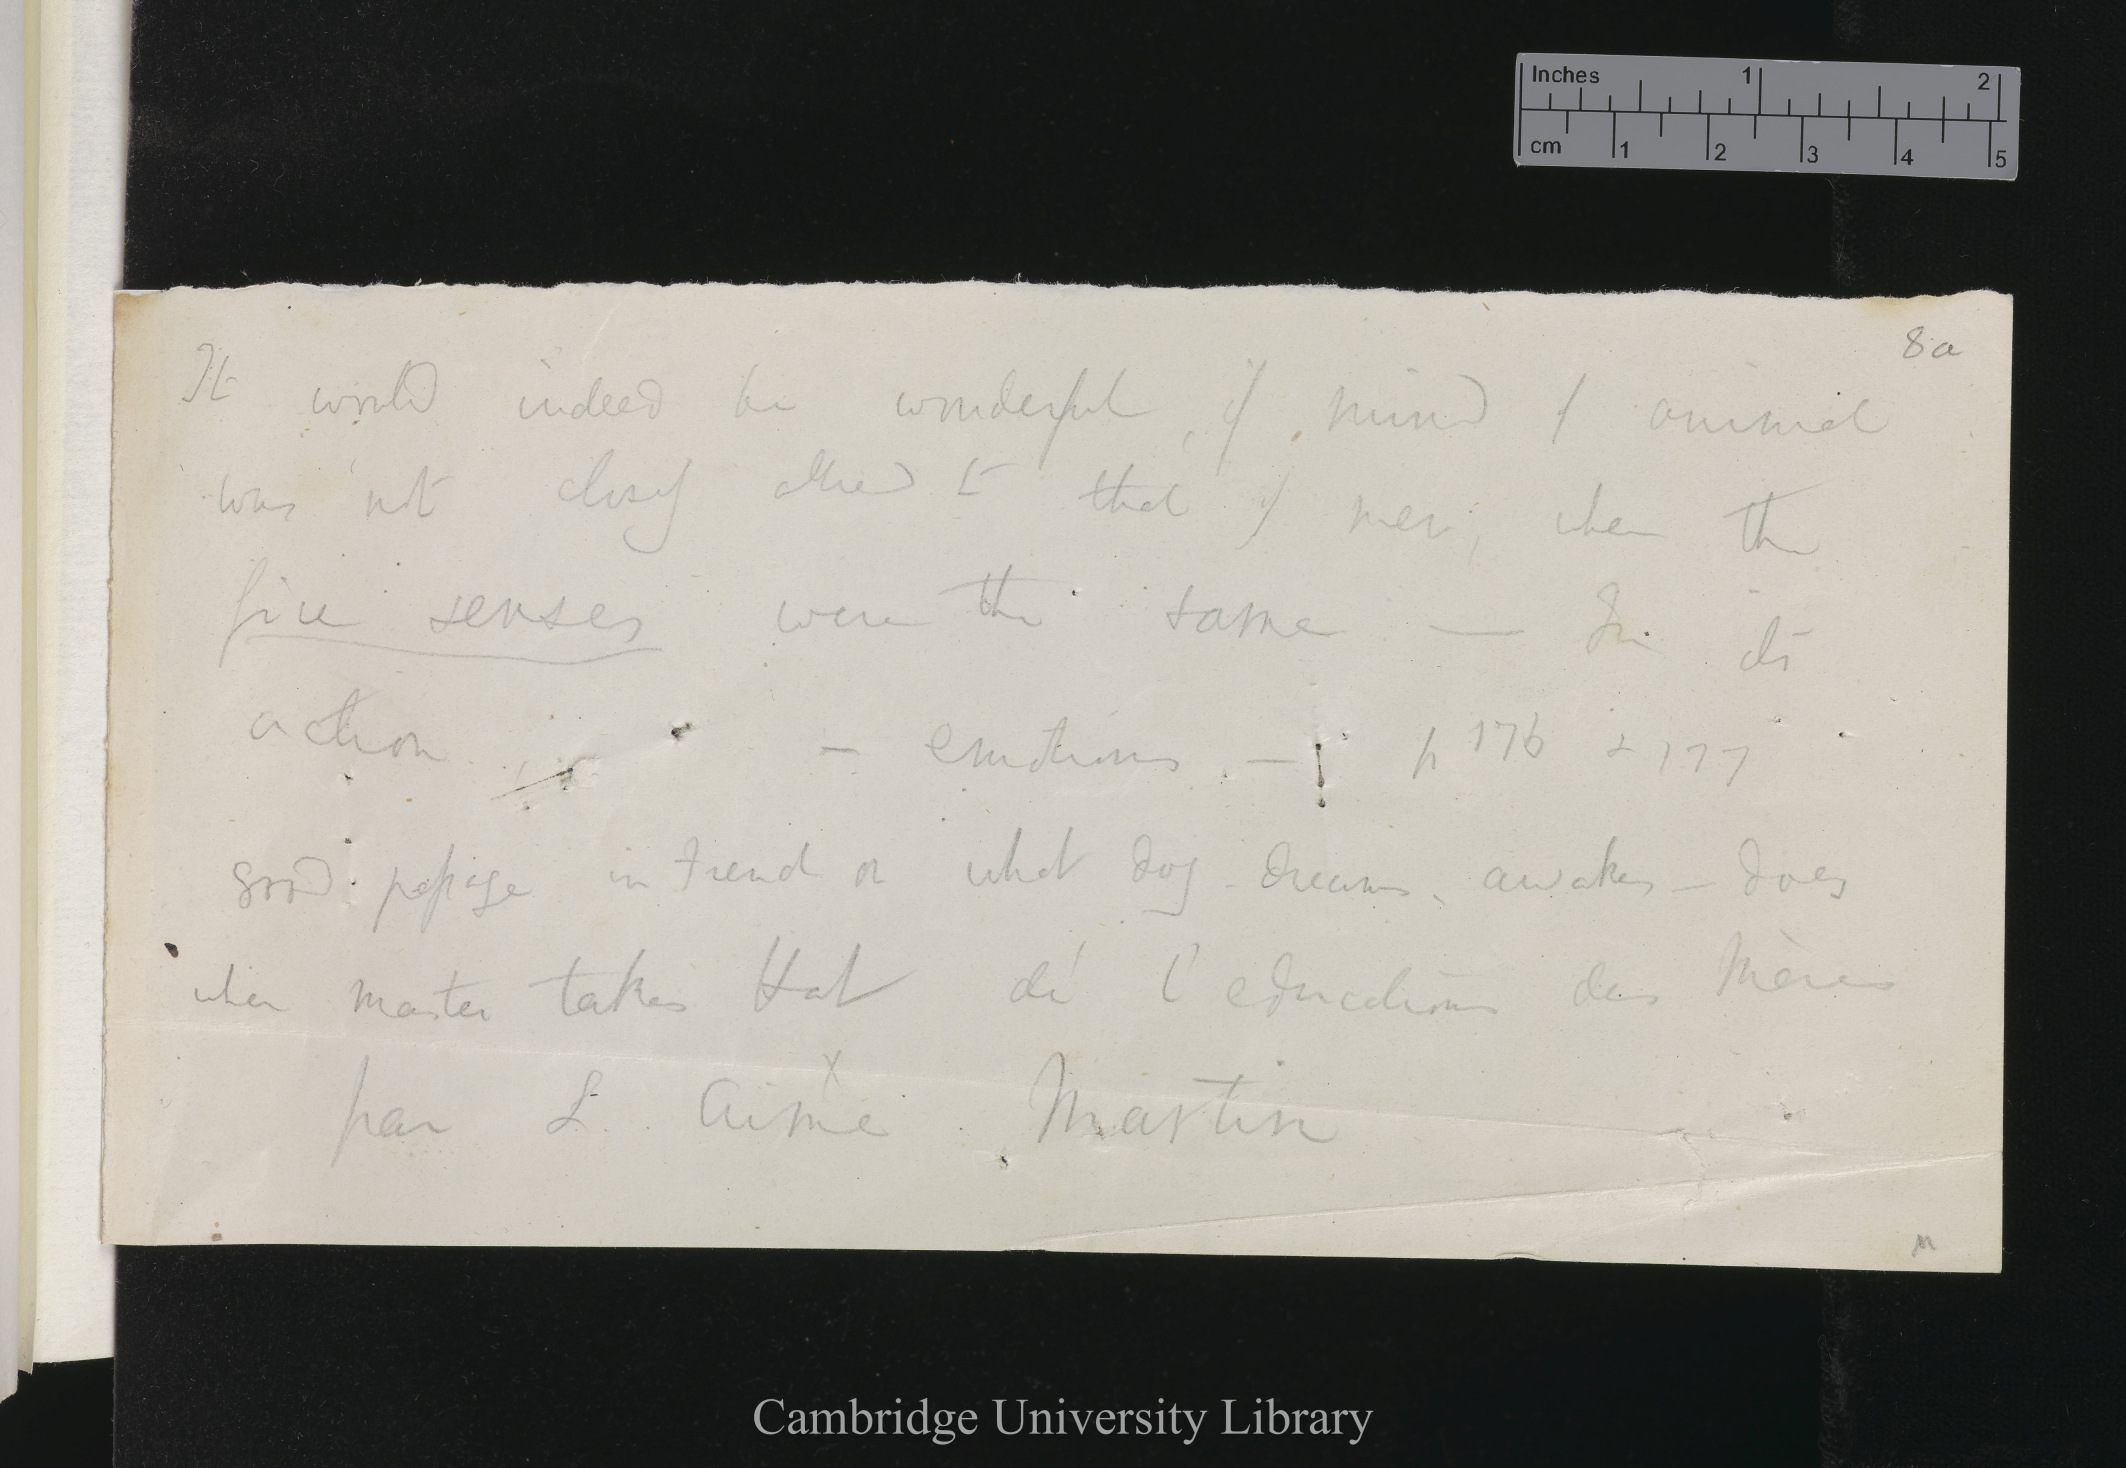 Inches 1 2
cm 1 2 3 4 5
8a
It would indeed be wonderful, if mind of animal
was not closely allied to that of men, when the
five senses were the same — In its
action, — emotions. — p 176 & 177
good passage in French on what dog dreams, awakes — does
when master takes Hat de l'educations des Mères
par L. Aimé Martin
Cambridge University Library